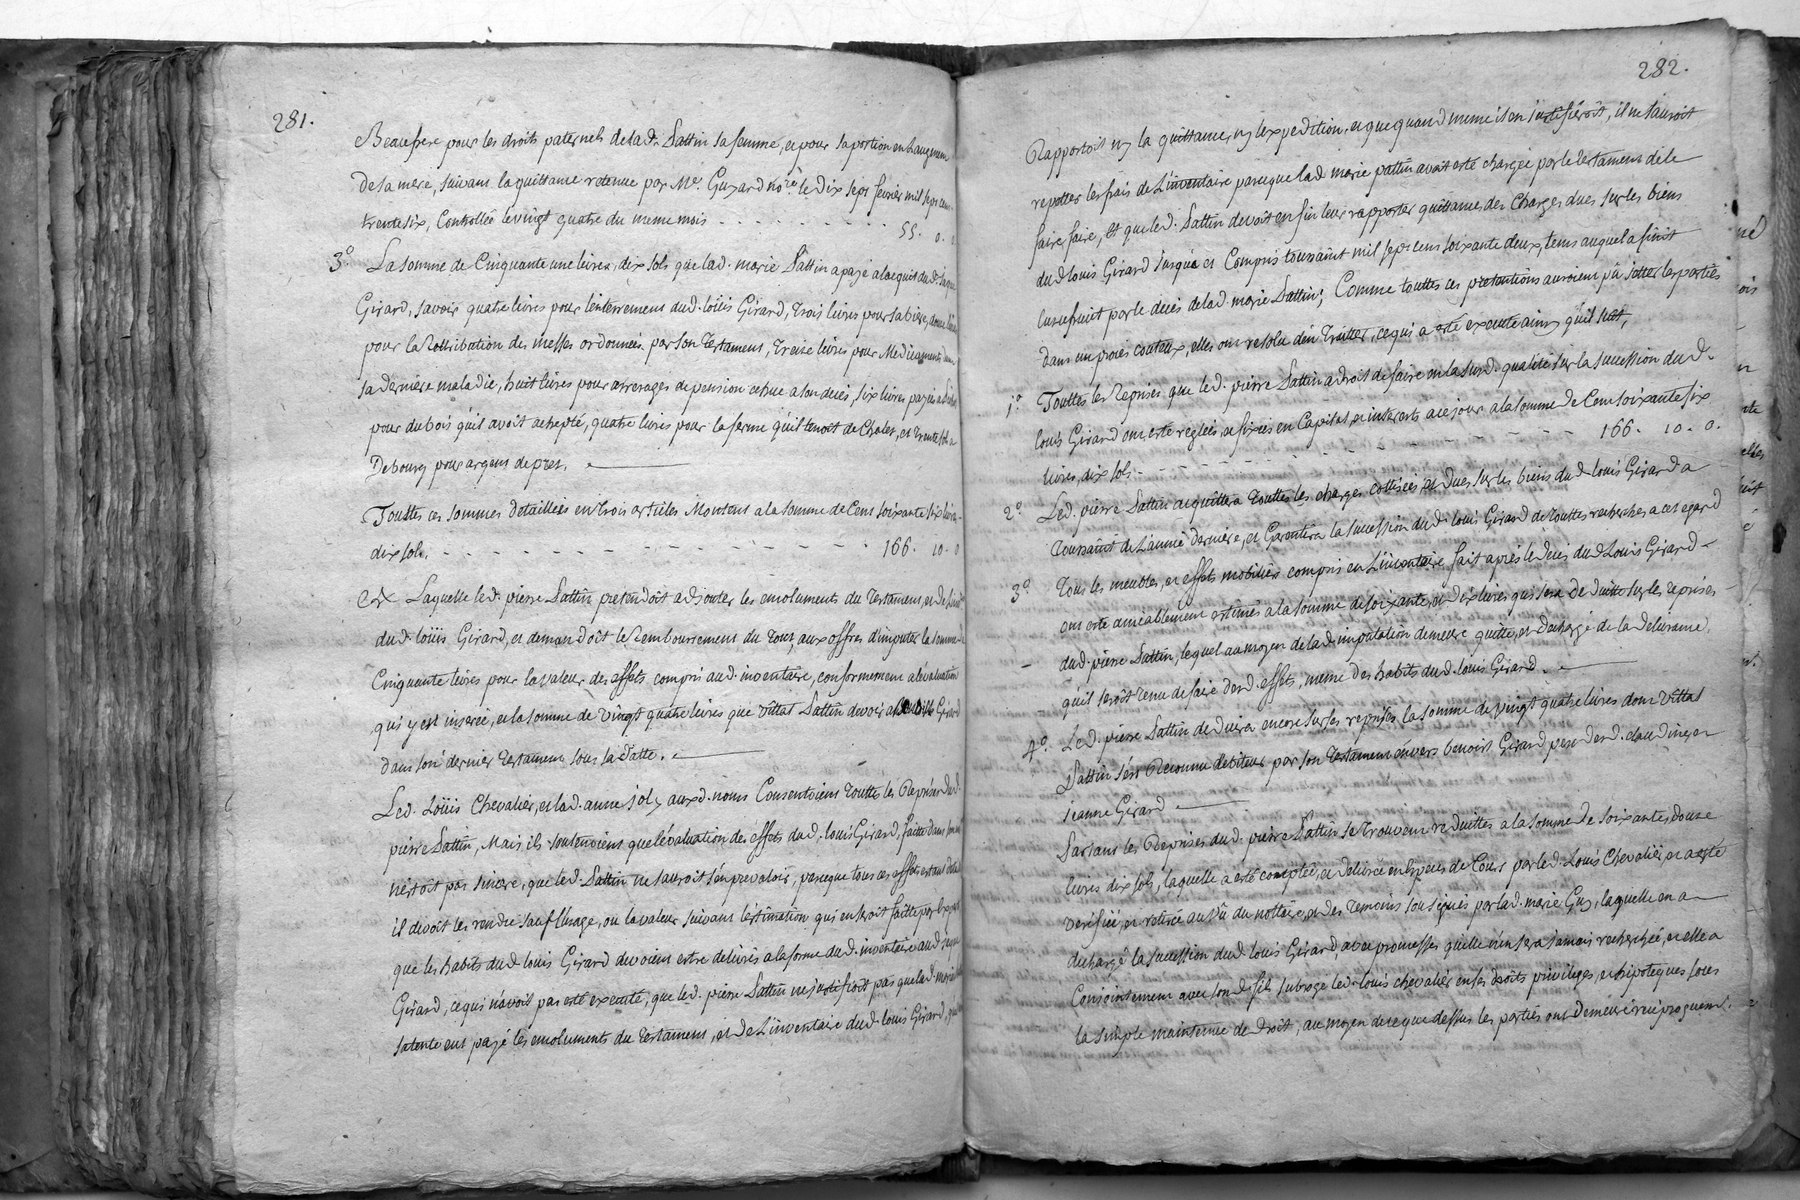 281.
Beaufrere pour les droits paternels de la d. Pattin sa femme, et pour sa portion en laugmen
de sa mere, suivant la quittance retenue par Me. Guyard nore le dix sept fevrier mil sept cent
trente six, Controllée le vingt quatre du meme mois - - - - - - - - 55. 0. 0
3o La somme de Cinquante une livres, dix sols que lad. marie Pattin a payé a lacquit du d.
Girard, savoir quatre livres pour lenterrement dud. loüis Girard, trois livres pour sa biere,
pour la Rettribution des messes ordonnées par son Testament, treize livres pour Medicaments
sa derniere maladie, huit livres pour arrerages de pension echue a son decès, six livres payées a
pour du bois qu'il avoit achepté, quatre livres pour la ferme qu'il tenoit de Cholet, et trente sols a
Debourg pour argent de pret.
Touttes ces sommes detaillées en trois articles Montent a la somme de Cent soixante six livres
dix sols. - - - - - - - - - - - - 166. 10. 0
A Laquelle led. pierre Pattin pretendoit adjouter les emoluments du Testament, et de
dud. loüis Girard, et demandoit le Remboursement du tout, aux offres d'imputer la somme
Cinquante livres pour la valeur des effets compris aud. inventaire, conformement a lévaluation
qui y est inserée, et la somme de vingt quatre livres que vittal Pattin devoit a Girard
dans son dernier testament sous sa Datte.
Led. Loüis Chevalier, et lad. anne joly auxd. noms Consentoient touttes les Reprises dud.
pierre Pattin, Mais ils soutenoient que lévaluation des effets dud. louis Girard, faitte dans
nétoit pas sincere, que led. Pattin ne sauroit s'en prevaloir, parceque tous ces effets
il devoit les rendre sauf lusage, ou la valeur suivant léstimation qui en seroit faitte par
que les habits dud. louis Girard devoient estre delivrés a la forme dud. inventaire aud.
Girard, ce qui n'avoit pas esté executé, que led. pierre Pattin ne justifioit pas que lad. marie
sa tente eut payé les emoluments du testament, et de L'inventaire dud. louis Girard,
282.
Rapportoit ny la quittance, ny lexpedition, et que quand meme il en justifieroit, il ne sauroit
repetter les frais de L'inventaire parceque lad. marie pattin avoit esté chargée par le testament de le
faire faire, Et que led. Pattin devoit enfin leur rapporter quittance des Charges dues sur les biens
dud louis Girard jusqua et Compris toussaint mil sept cent soixante deux, tems auquel a finit
lusufruit par le decès de lad. marie Pattin; Comme touttes ces pretentions auroient pû jetter les parties
dans un procès couteux, elles ont resolu d'en traitter, ce qui a esté executé ainsy qu'il suit,
1o. Touttes les Reprises que led. pierre Pattin a droit de faire en la susd. qualité sur la succession dud.
louis Girard ont esté reglées, et fixées en Capital, et interets a ce jour a la somme de Cent soixante six
livres, dix sols - - - - - - - - - - 166. 10. 0.
2o. Led. pierre Pattin acquittera touttes les charges cottisées et dues sur les biens dud. louis Girard a
toussaint de L'année derniere, et Garentira la succession dud. louis Girard de touttes recherches a cet egard
3o. Tous les meubles, et effets mobiliers compris en L'inventaire fait aprés le decès dud Louis Girard
ont esté amicablement estimés a la somme de soixante, et dix livres qui sera deduitte sur les reprises
dud. pierre Pattin, lequel au moyen de lad. imputation demeure quitte, et dechargé de la delivrance
qu'il seroit tenu de faire desd. effets, meme des habits dud. louis Girard.
4o. Led. pierre Pattin deduira encore sur ses reprises la somme de vingt quatre livres dont vittal
Pattin s'est Reconnu debiteur par son testament envers benoist Girard pere desd. claudine, et
jeanne Girard
Partant les Reprises dud. pierre Pattin se trouvent reduittes a la somme de soixante, douze
livres dix sols, laquelle a esté comptée, et delivrée en Especes de Cours par led. Louis Chevalier, et a esté
verifiée, et retirée au vû du nottaire, et des temoins sousignés par lad. marie Guy, laquelle en a
dechargé la succession dud. louis Girard, avec promesses quelle n'en sera jamais recherchée, et elle a
Conjointement avec son d. fils subrogé led. louis chevalier en ses droits privileges, et hipoteques sous
la simple maintenue de Droit, au moyen de ce que dessus les parties ont demeuré reciproquement